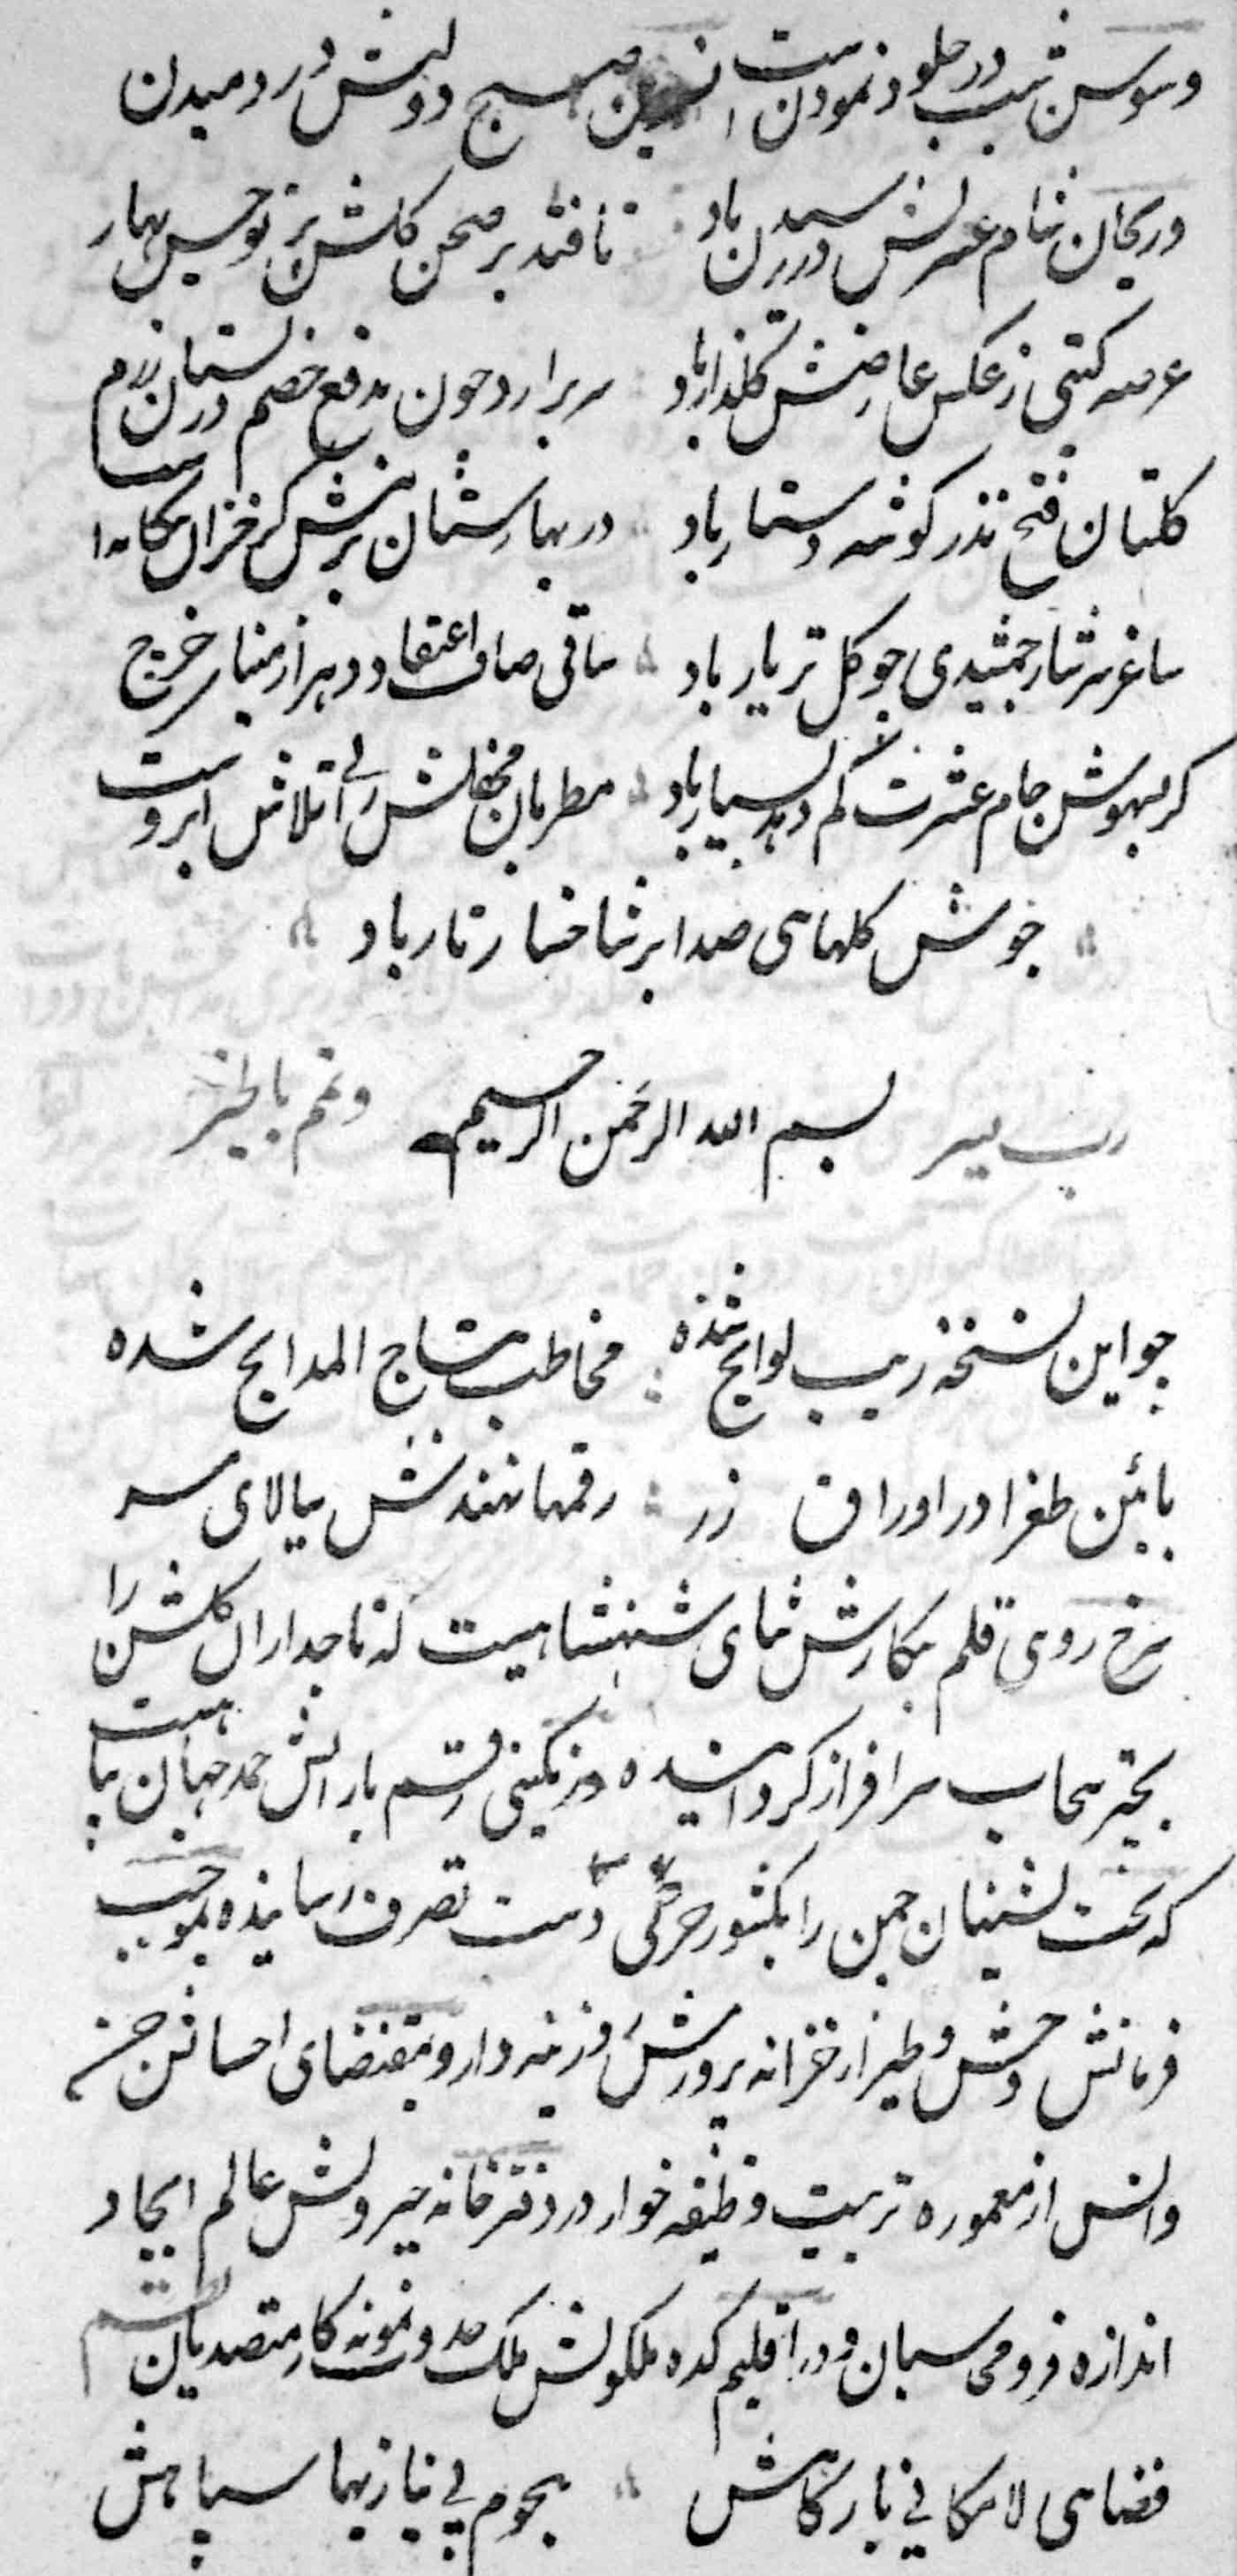 وسوسن شب در جلوه نمودن است نسرین صبح دولتش در دمیدن
وریحان شام عشرتش در رسیدن باد تا فتد بر صحن کلشن پرتو جیش بهار
عرصه کیتی ز عکس عارضش کلذار باد سر برارد چون بدفع خصم در بستان رزم
کلبتان فتح نذر کوشه دستار باد در بهارستان بزمش کز خزان بیکانه
ساغر سرشار جمشیدی چو کل تر یار باد ساقی صاف اعتقاد دهر از مینای چرخ
کر بهوش جام عشرت کم دهد بسیار باد مطربان محفلش را بی تلاش ابروست
جوش کلهای صدا بر شاخسار تار باد
رب یسر بسم الله الرحمن الرحیم وتمم بالخیر
چو این نسخه زیب لوایح شده مخاطب بتاج المدایح شده
بائین طغرا در اوراق زر رقمها نهندش ببالای سر
سرخ روی قلم بنکارش ثنای شهنشاهیست که تاجداران کلشن را
بچتر سحاب سرافراز کردانیده و رنکینی رقم بارایش حمد جهان
که تخت نشینان چمن را بکشور خرمی دست تصرف رسانیده بموجب
فرمانش وحش و طیر از خزانه پرورش وزینه دار و بمقتضای احسانش جن
وانس از معموره تربیت وظیفه خوار در دفترخانه جبروتش عالم ایجاد
اندازه فرو می سبمان و در اقلیم کده ملکوتش ملک صد و نمونه کار متصدیان نظم
فضای لامکانی بارکاهش هجوم بی نیازیها سپاهش